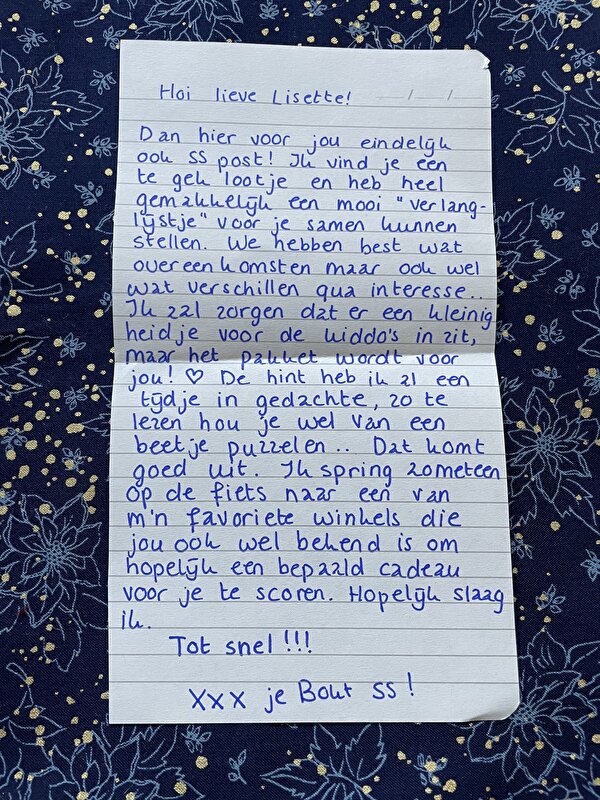 Hoi lieve Lisette! / /
Dan hier voor jou eindelijk
ook SS post! Ik vind je een
te gek lootje en heb heel
gemakkelijk een mooi "verlang-
lijstje" voor je samen kunnen
stellen. We hebben best wat
overeenkomsten maar ook wel
wat verschillen qua interesse..
Ik zal zorgen dat er een kleinig
heidje voor de kiddo's in zit,
maar het pakket wordt voor
jou! ♡ De hint heb ik al een
tijdje in gedachte, zo te
lezen hou je wel van een
beetje puzzelen.. Dat komt
goed uit. Ik spring zometeen
op de fiets naar een van
m'n favoriete winkels die
jou ook wel bekend is om
hopelijk een bepaald cadeau
voor je te scoren. Hopelijk slaag
ik.
Tot snel !!!
XXX je Bout SS!